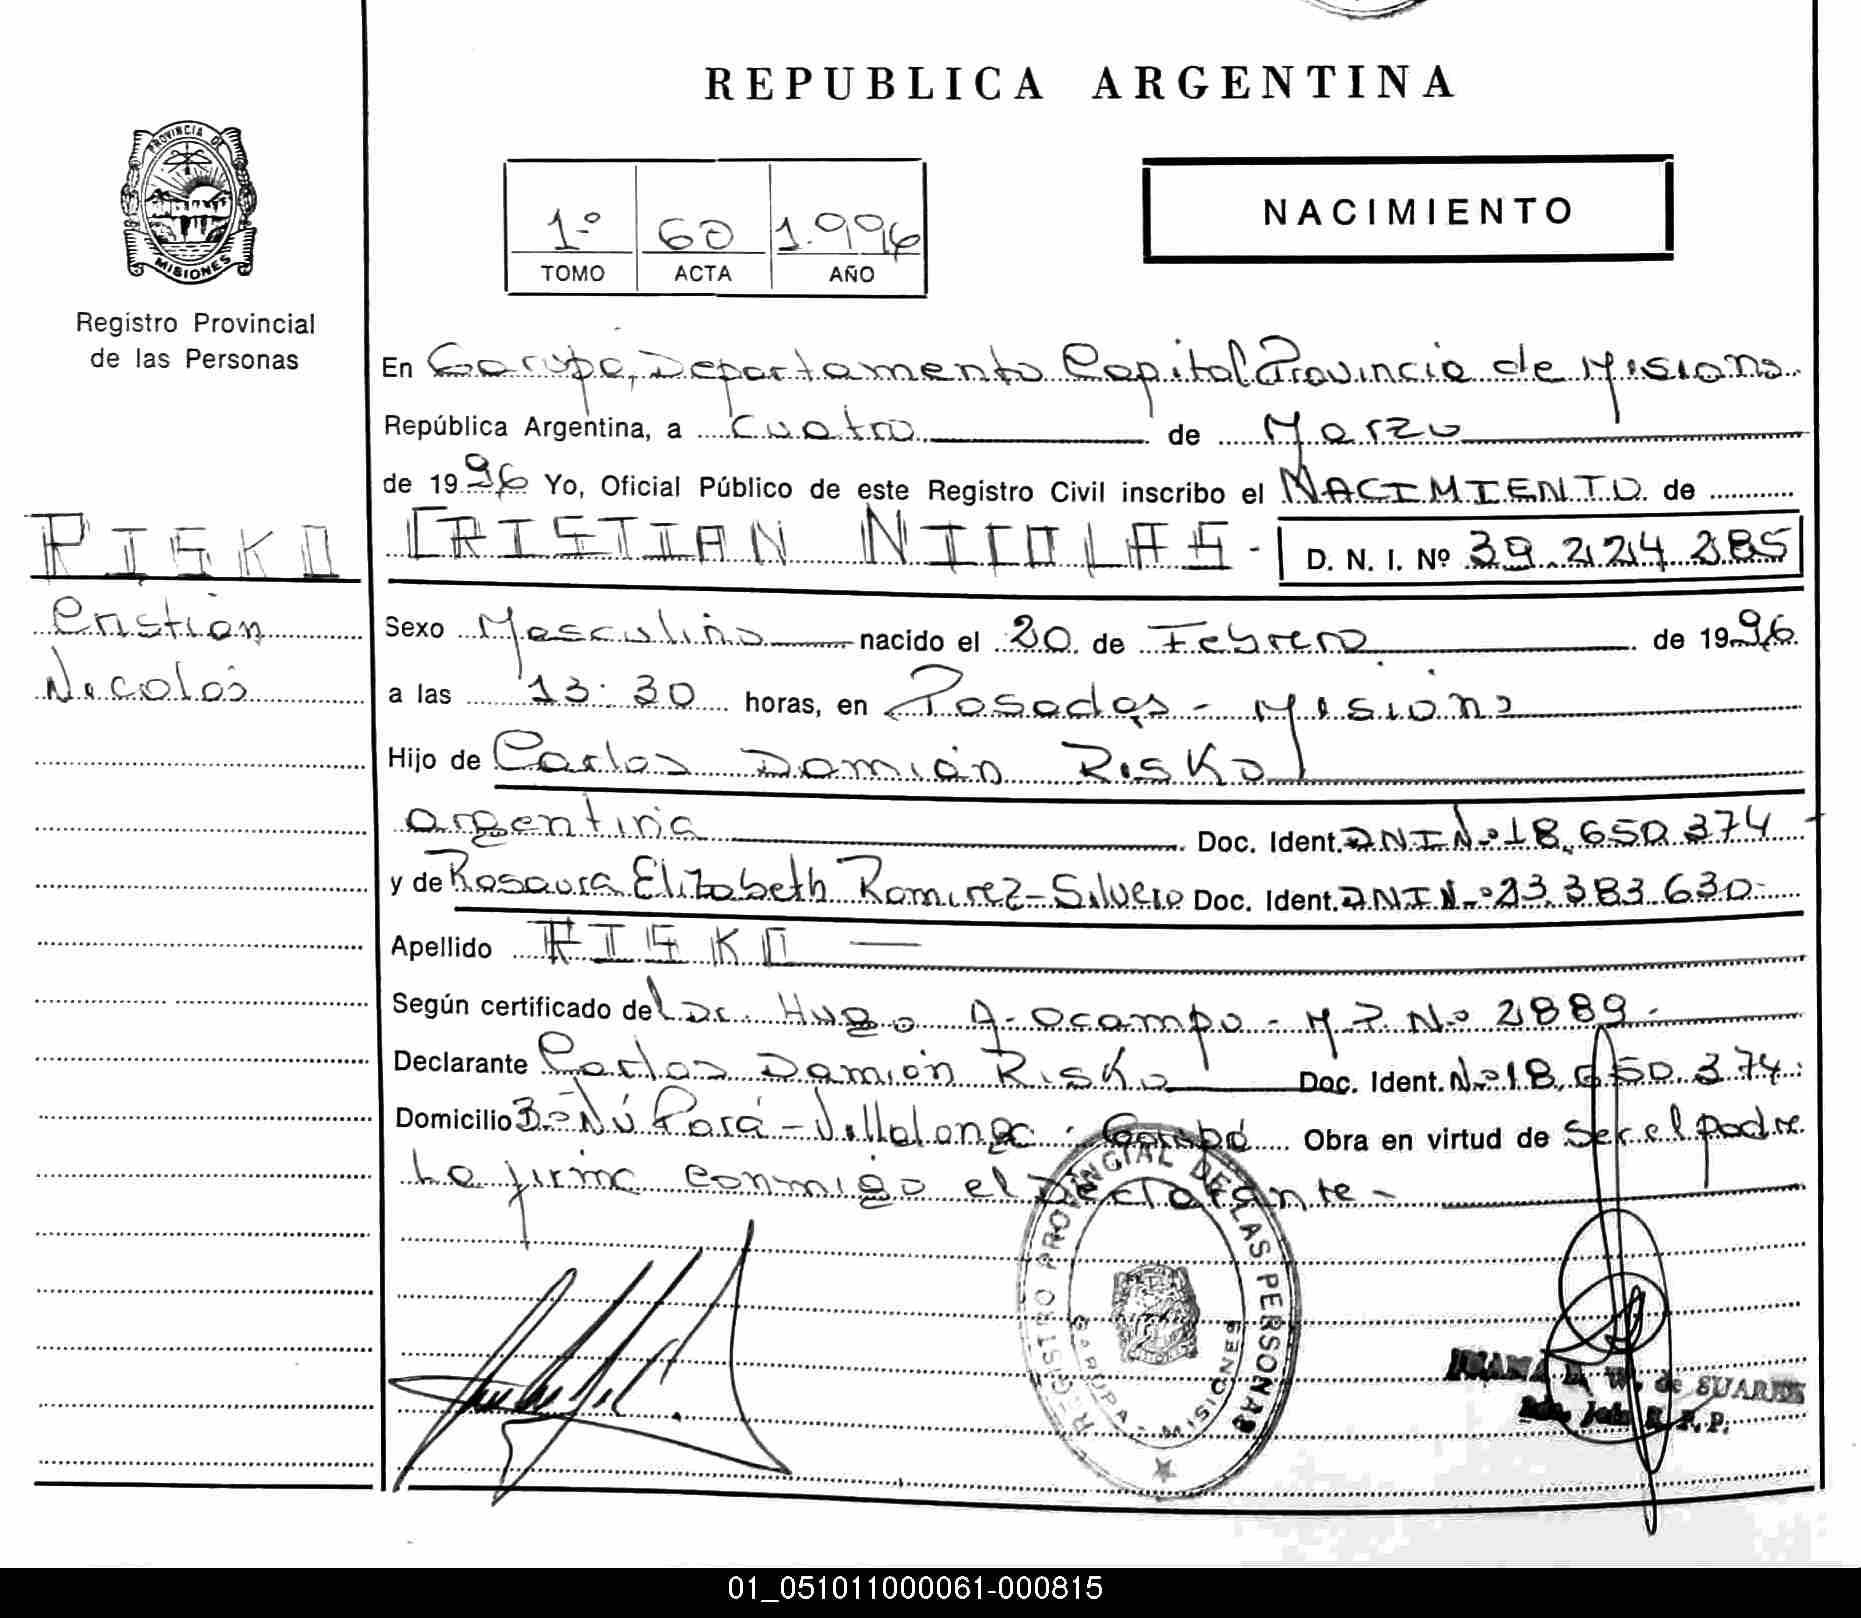 REPUBLICA ARGENTINA
PROVINCIA DE
MISIONES
Registro Provincial
de las Personas
1º 60 1.996
TOMO ACTA AÑO
NACIMIENTO
En Garupá, Departamento Capital Provincia de Misiones
República Argentina, a cuatro de Marzo
de 1996 Yo, Oficial Público de este Registro Civil inscribo el NACIMIENTO de
RISKO CRISTIAN NICOLAS - D. N. I. Nº 39.224.285
Cristian Sexo Masculino nacido el 20 de Febrero de 1996.
Nicolás a las 13:30 horas, en Posadas - Misiones
Hijo de Carlos Damián Risko
argentina Doc. Ident. DNI Nº 18.650.374 -
y de Rosaura Elizabeth Ramirez-Silvero Doc. Ident. DNI N.º 23.383.630-
Apellido RISKO —
Según certificado del Dr. Hugo A. Ocampo - M.P. Nº 2889.-
Declarante Carlos Damión Risko Doc. Ident. Nº 18.650.374.
Domicilio Bº Ñú Porá - Villalonga - Garupá Obra en virtud de ser el padre
La firma conmigo el Declarante -
REGISTRO PROVINCIAL DE LAS PERSONAS
GARUPA - MISIONES
W. de SUARES
R. P. P.
01_051011000061-000815